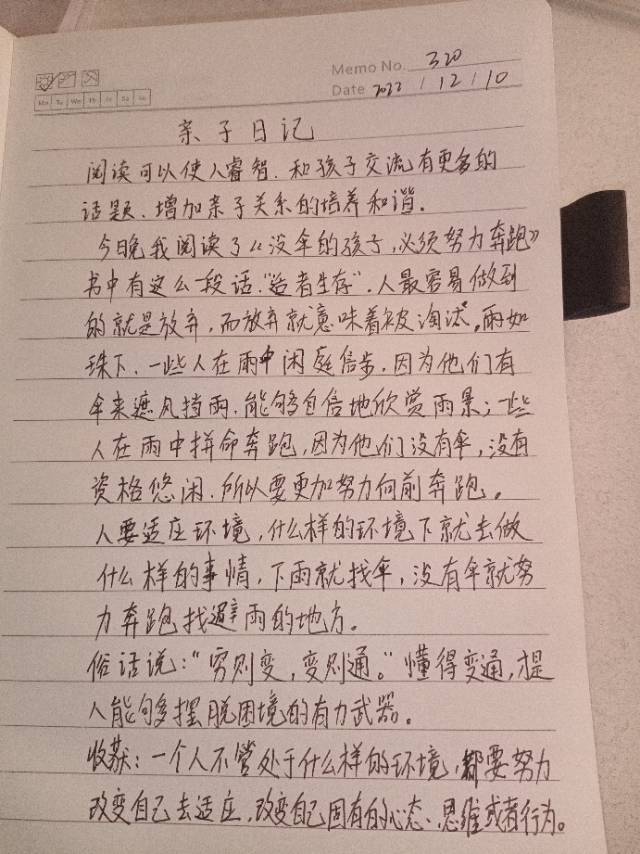 Memo No. 320
Mo Tu We Th Fr Sa Su
Date 2022 / 12 / 10
亲子日记
阅读可以使人睿智.和孩子交流有更多的
话题、增加亲子关系的培养和谐.
今晚我阅读了《没伞的孩子,必须努力奔跑》
书中有这么一段话."适者生存".人最容易做到
的就是放弃,而放弃就意味着被淘汰。雨如
珠下.一些人在雨中闲庭信步.因为他们有
伞来遮风挡雨.能够自信地欣赏雨景;一些
人在雨中拼命奔跑,因为他们没有伞,没有
资格悠闲.所以要更加努力向前奔跑。
人要适应环境,什么样的环境下就去做
什么样的事情,下雨就找伞,没有伞就努
力奔跑找避雨的地方。
俗话说:"穷则变,变则通。"懂得变通,才是
人能够摆脱困境的有力武器。
收获:一个人不管处于什么样的环境,都要努力
改变自己去适应.改变自己固有的心态、思维或者行为。